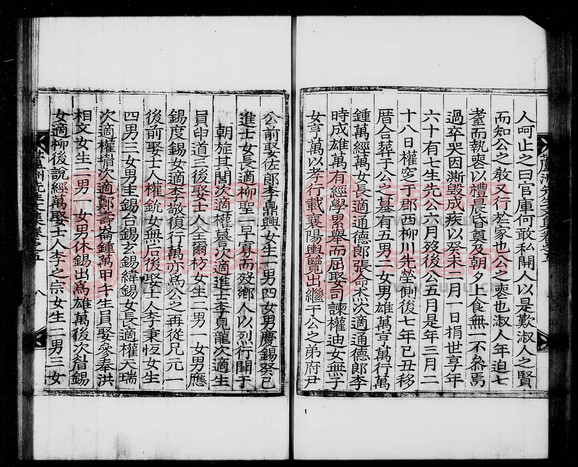 人呵止之曰官庫何敢私開人以是歎淑人之賢
而知公之敎又行於家也公之喪也淑人年迫七
耋而執喪以禮是昏奠及朝夕上食無一不參焉
過卒哭因澌毁成疾以癸未二月一日捐世享年
六十有七生先公六月歿後公五月是年三月二
十八日權窆于郡西柳川先塋側後七年己丑移
厝合葬于公之墓有五男二女男雄萬亨萬行萬
鍾萬經萬女長適通德郎張命杰次適通德郎李
時成雄萬有經學累舉而屈娶司諫權迪女無子
女亨萬以孝行載襄陽輿覽出繼于公之弟府尹
公前娶佐郎李鼎興女生一男四女男慶錫癸巳
進士女長適柳聖一早寡而歿鄕人以烈行聞于
朝旌其閭次適權 次適進士李見龍次適生
員申道三後娶士人 爾坊女生二男一女男應
錫度錫女適李敬後行萬亦爲公之再從兄元一
後前娶士人權鈗女無后後娶士人李秉恆女生
四男三女男生錫台錫玄錫緯錫女長適權天瑞
次適權壻次適鄭壽崙鍾萬甲午生員娶參奉洪
相文女生二男一女男休錫出爲雄萬後次 錫
女適柳後說經萬娶士人李之宗女生二男三女